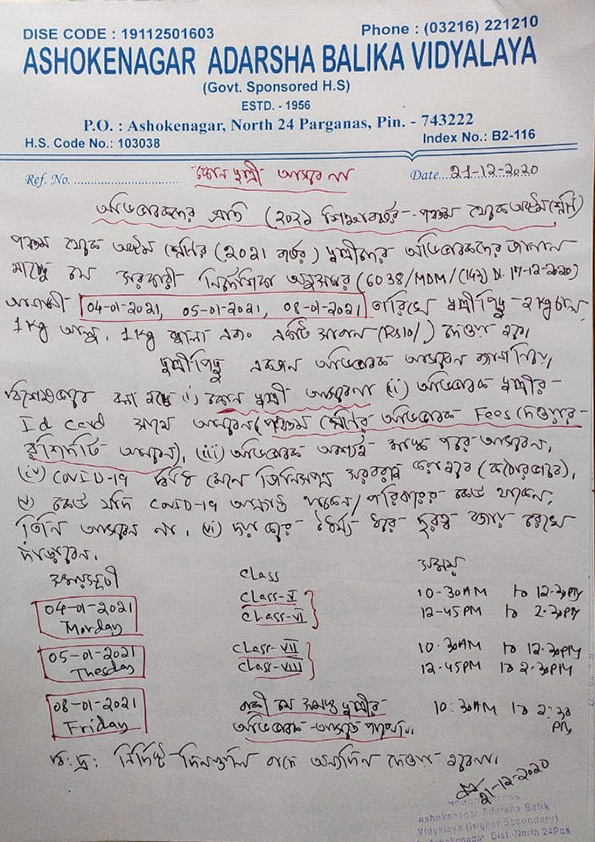 DISE CODE : 19112501603 Phone : (03216) 221210
ASHOKENAGAR ADARSHA BALIKA VIDYALAYA
(Govt. Sponsored H.S)
ESTD. - 1956
P.O. : Ashokenagar, North 24 Parganas, Pin. - 743222
H.S. Code No.: 103038 Index No.: B2-116
Ref. No. কোন ছাত্রী আসবে না Date 21-12-2020
অভিভাবকদের প্রতি (২০২১ শিক্ষাবর্ষের পঞ্চম থেকে অষ্টম শ্রেণি)
পঞ্চম থেকে অষ্টম শ্রেণির (২০২১ বর্ষের) ছাত্রীদের অভিভাবকদের জানান
যাচ্ছে যে সরকারী নির্দেশিকা অনুসারে (6038/MDM/(143) Dt. 17-12-2020)
আগামী 04-01-2021, 05-01-2021, 08-01-2021 তারিখে ছাত্রীপিছু 2 kg চাল,
1 kg আলু, 1 kg ছোলা এবং একটি সাবান (Rs10/) দেওয়া হবে।
ছাত্রীপিছু একজন অভিভাবক আসবেন
বিশেষভাবে বলা হচ্ছে (i) কোন ছাত্রী আসবেনা (ii) অভিভাবক ছাত্রীর
Id card সাথে আনবেন (পঞ্চম শ্রেণির অভিভাবক Fees দেওয়ার
রশিদটি আনবেন), (iii) অভিভাবক অবশ্যই মাস্ক পরে আসবেন,
(iv) COVID-19 বিধি মেনে জিনিসপত্র সরবরাহ করা হবে (কঠোরভাবে),
(v) কেউ যদি COVID-19 আক্রান্ত থাকেন/পরিবারের কেউ থাকেন,
তিনি আসবেন না, (vi) ধৈর্য্য ধরে দূরত্ব বজায় রেখে
দাঁড়াবেন,
সময়সূচী class সময়
04-01-2021 class-V 10-30AM to 12-30PM
Monday class-VI 12-45PM to 2-30PM
05-01-2021 class-VII 10.30AM to 12.30PM
Thesday class-VIII 12.45PM to 2.30PM
08-01-2021 বাকী যে সমস্ত ছাত্রীর 10:30AM to 2:30 PM
Friday অভিভাবক আসতে পারেননি
বি:দ্র: নির্দিষ্ট দিনগুলি বাদে অন্যদিন দেওয়া হবেনা।
21-12-2020
Ashokenagar Adarsha Balik
Vidyalaya (Higher Secondary)
Ashokenagar Dist-North 24 Pgs